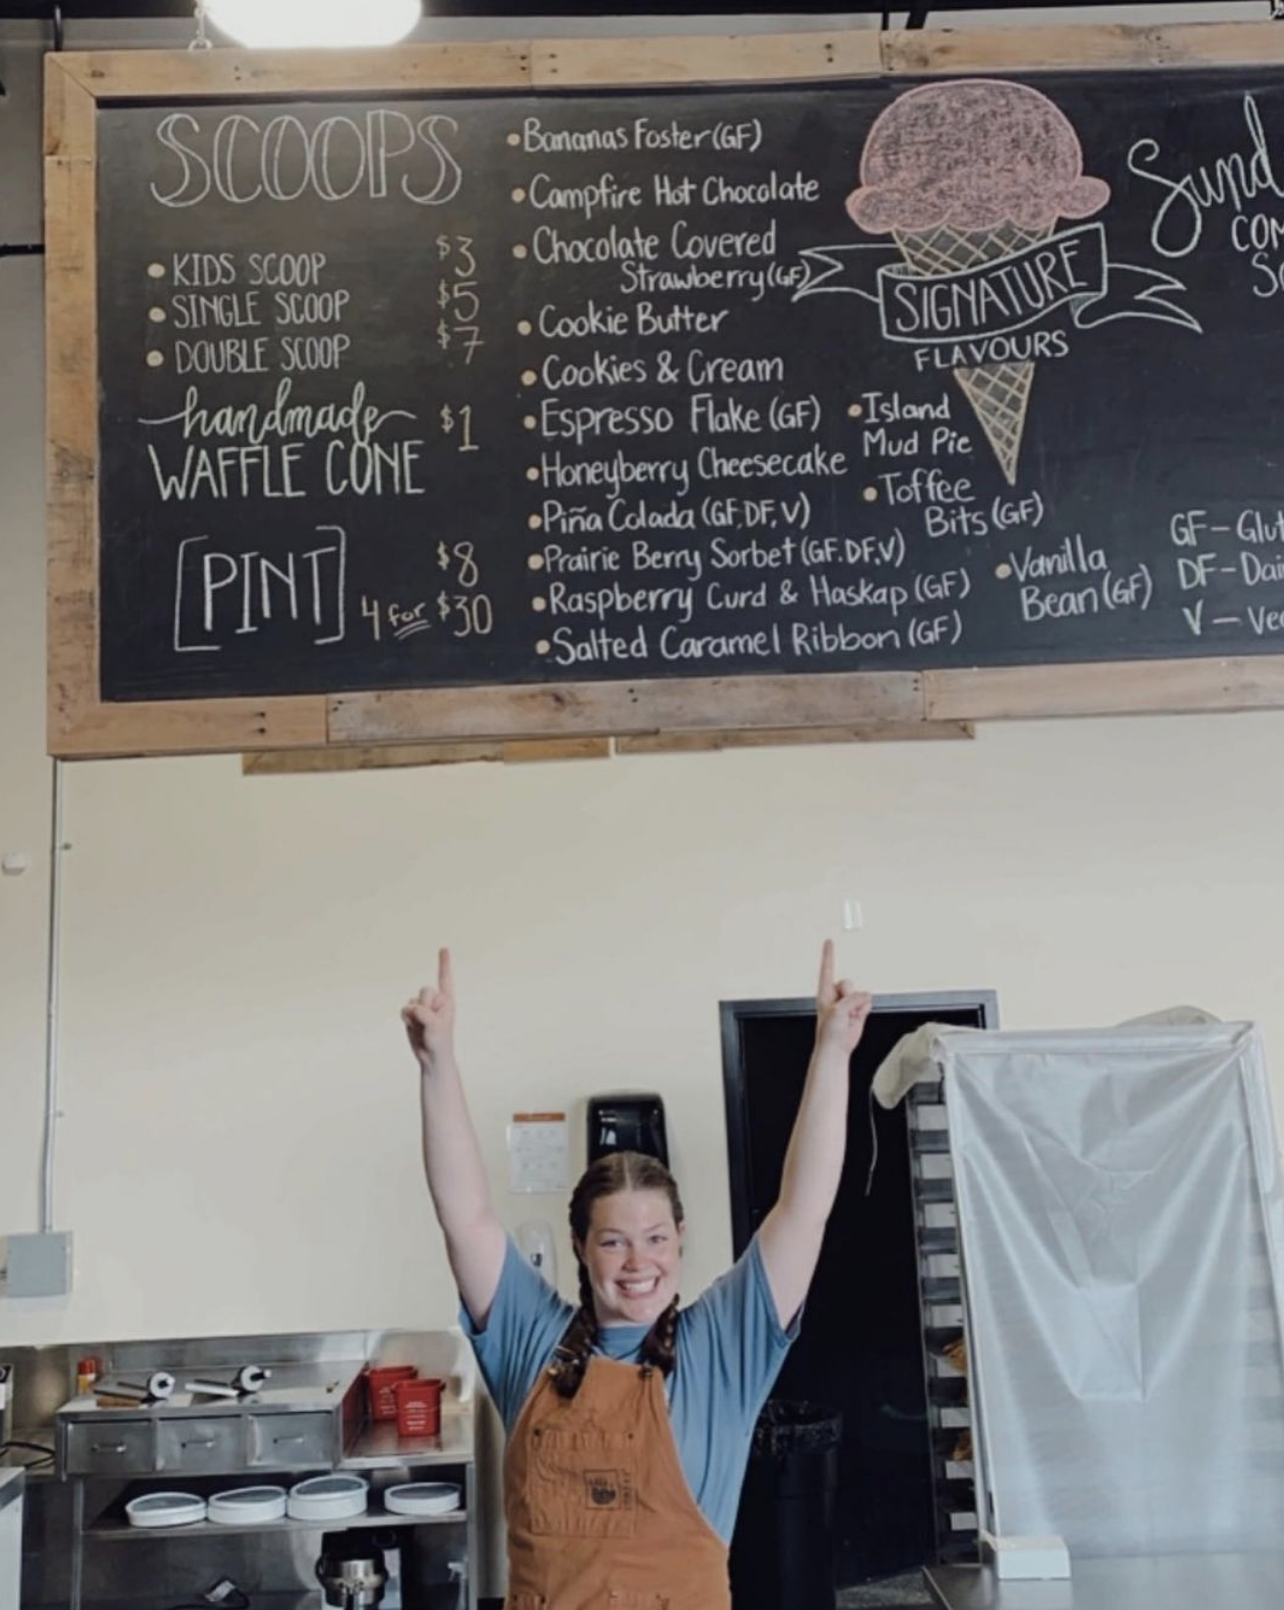 SCOOPS
• KIDS SCOOP $3
• SINGLE SCOOP $5
• DOUBLE SCOOP $7
handmade
WAFFLE CONE $1
[PINT] $8
4 for $30
• Bananas Foster (GF)
• Campfire Hot Chocolate
• Chocolate Covered
Strawberry (GF)
• Cookie Butter
• Cookies & Cream
• Espresso Flake (GF)
• Honeyberry Cheesecake
• Piña Colada (GF, DF, V)
• Prairie Berry Sorbet (GF.DF.V)
• Raspberry Curd & Haskap (GF)
• Salted Caramel Ribbon (GF)
SIGNATURE
FLAVOURS
• Island
Mud Pie
• Toffee
Bits (GF)
• Vanilla
Bean (GF)
Sund
COM
So
GF - Glu
DF - Dai
V - Ve